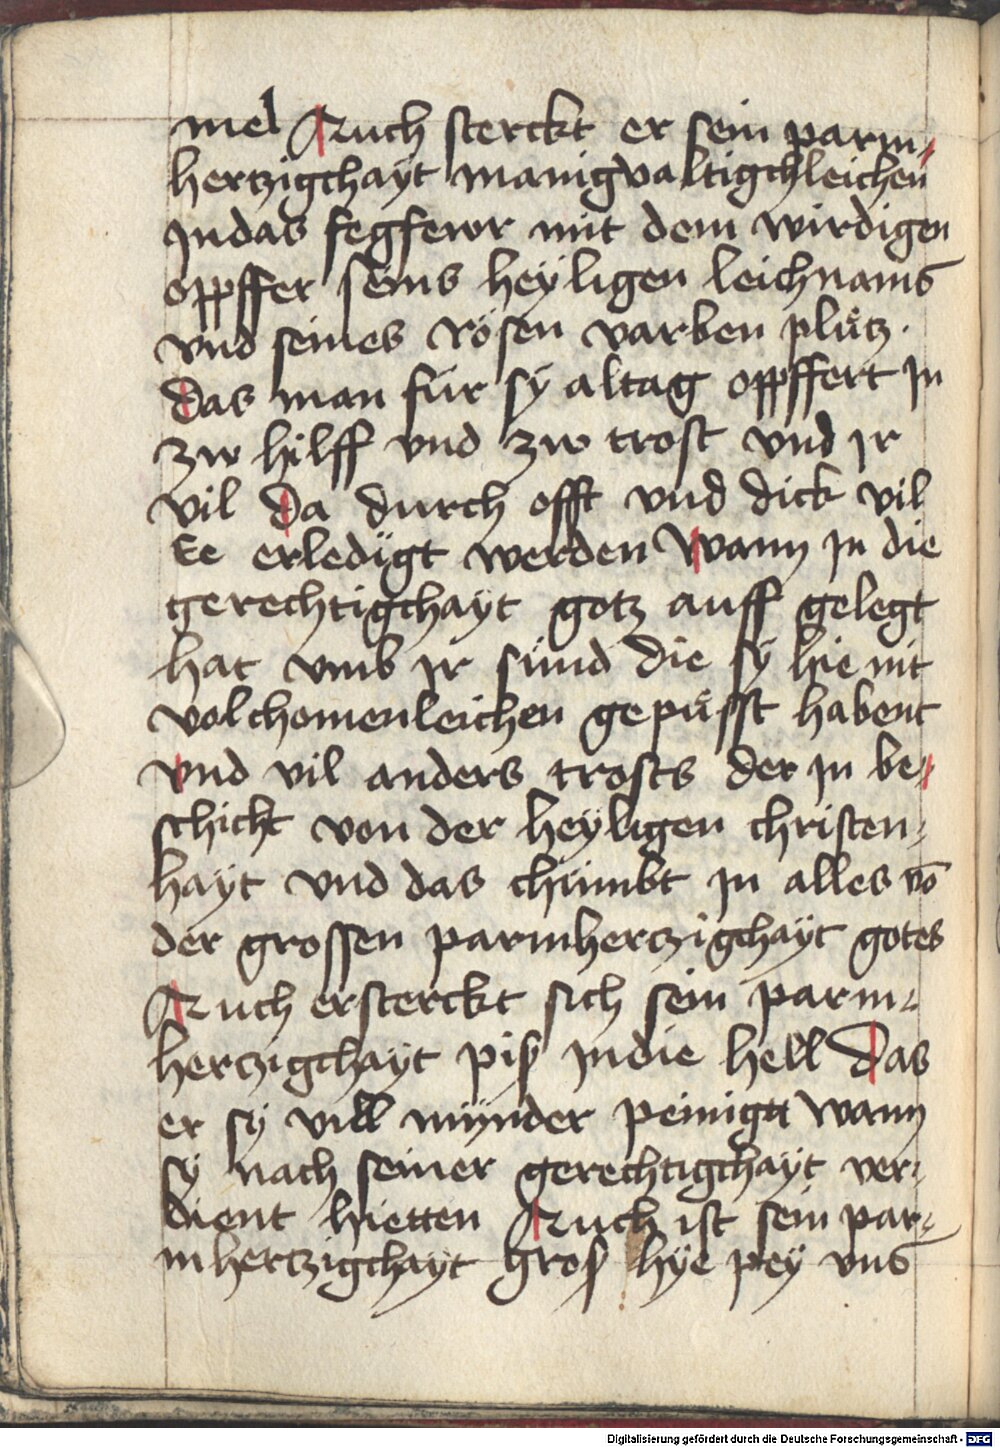 mel Auch sterckt er sein parm-
hertzigchayt manigvaltigchleichen
Jn das fegfewr mit dem wirdigen
oppffer seins heyligen leichnams
vnd seines rösen varben plütz.
Das man für sy altag oppffert Jn
zw hilff vnd zw trost vnd Jr
vil Da durch offt vnd dick vil
Ee erledigt werden Wann Jn die
gerechtigchayt gotz auff gelegt
hat vmb Jr sünd die sy hie nit
volchomenleichen gepüsst habent
vnd vil anders trosts der Jn be-
schicht von der heyligen christen-
hayt vnd das chümbt Jn alles võ
der grossen parmhertzigchayt gotes
Auch ersterckt sich sein parm-
hertzigchayt piß Jn die hell Das
er sy vill mynder peinigt Wann
sy nach seiner gerechtigchayt ver-
dient hietten Auch ist sein par-
mhertzigchayt groß hye pey vns
Digitalisierung gefördert durch die Deutsche Forschungsgemeinschaft - DFG